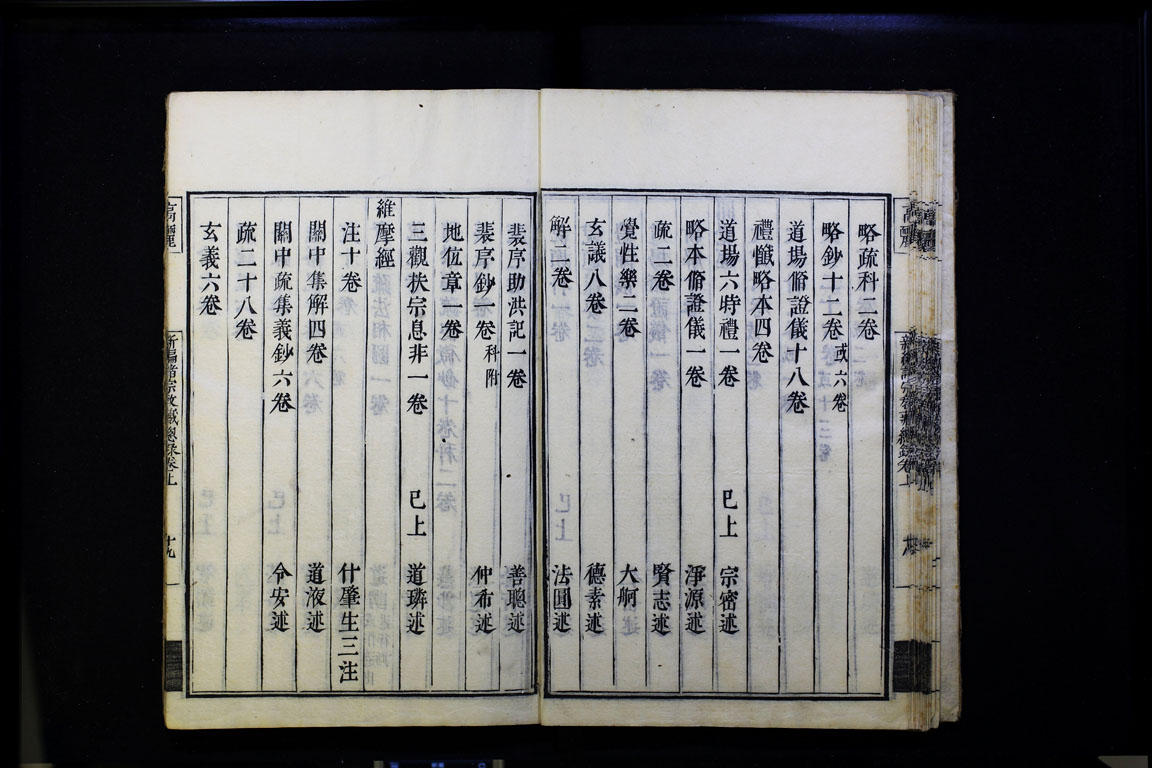 略疏科二卷
略鈔十二卷或六卷
道場修證儀十八卷
禮懺略本四卷
道場六時禮一卷 已上 宗密述
略本修證儀一卷 淨源述
疏二卷 賢志述
覺性樂二卷 大舸
玄議八卷 德素述
解二卷 法圓述
裴序助洪記一卷 善聰述
裴序鈔一卷科附 仲希述
地位章一卷
三觀扶宗息非一卷 已上 道璘述
維摩經
注十卷 什肇生三注
關中集解四卷 道液述
關中疏集義鈔六卷 令安述
疏二十八卷
玄義六卷
高麗 新編諸宗教藏總錄卷上 十九